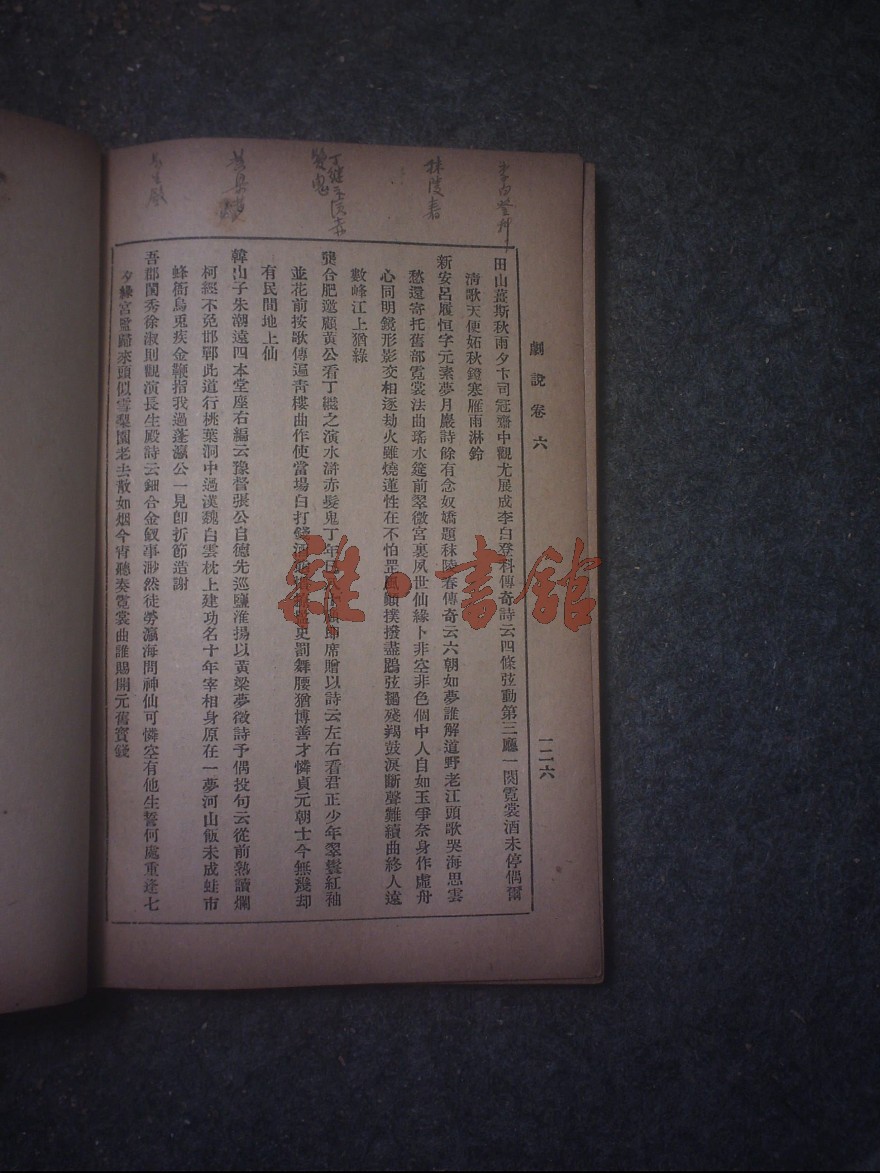 劇說卷六
一二六
田山薑斯秋雨夕卞司寇齋中觀尤展成李白登科傳奇詩云四條弦動第三廳一闋霓裳酒未停偶爾
淸歌天便妬秋鐙寒雁雨淋鈴
新安呂履恒字元素夢月巖詩餘有念奴嬌題秣陵春傳奇云六朝如夢誰解道野老江頭歌哭海思雲
愁還寄托舊部霓裳法曲瑤水筵前翠微宮裏夙世仙緣卜非空非色個中人自如玉爭奈身作虛舟
心同明鏡形影交相逐劫火雖燒蓮性在不怕罡風顚撲撥盡鵾弦搊殘羯鼓淚斷聲難續曲終人遠
數峰江上猶綠
龔合肥邀顧黃公看丁繼之演水滸赤髮鬼丁年已八十顧卽席贈以詩云左右看君正少年翠鬟紅袖
並花前按歌傳遍靑樓曲作使當場白打錢史罰舞腰猶博善才憐貞元朝士今無幾却
有民間地上仙
韓山子朱潮遠四本堂座右編云豫督張公自德先巡鹽淮揚以黃粱夢徵詩予偶投句云從前熟讀爛
柯經不免邯鄲此道行桃葉洞中過漢魏白雲枕上建功名十年宰相身原在一夢河山飯未成蛙市
蜂衙烏兎疾金鞭指我過蓬瀛公一見卽折節造謝
吾郡閨秀徐淑則觀演長生殿詩云鈿合金釵事渺然徒勞瀛海問神仙可憐空有他生誓何處重逢七
夕緣宮監歸來頭似雪犁園老去散如烟今宵聽奏霓裳曲誰賜開元舊賓錢
秣陵春
雜·書館